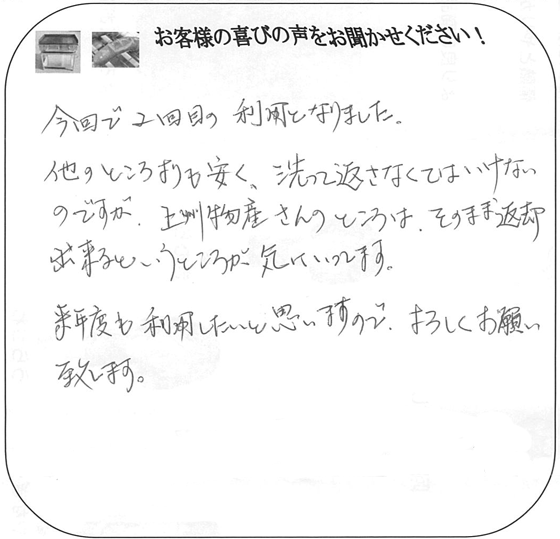 お客様の喜びの声をお聞かせください！
今回で2回目の利用となりました。
他のところよりも安く、洗って返さなくてはいけない
のですが、上州物産さんのところは、そのまま返却
出来るというところが気にいってます。
来年度も利用したいと思いますので、よろしくお願い
致します。